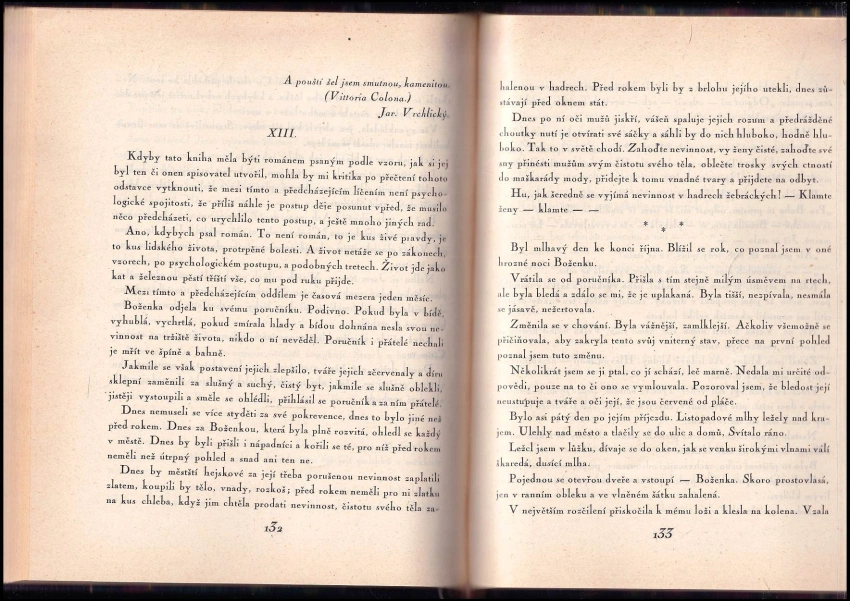 A pouští šel jsem smutnou, kamenitou.
(Vittoria Colona.)
Jar. Vrchlický.
XIII.
Kdyby tato kniha měla býti románem psaným podle vzoru, jak si jej
byl ten či onen spisovatel utvořil, mohla by mi kritika po přečtení tohoto
odstavce vytknouti, že mezi tímto a předcházejícím líčením není psycho-
logické spojitosti, že příliš náhle je postup děje posunut vpřed, že musilo
něco předcházeti, co urychlilo tento postup, a ještě mnoho jiných rad.
Ano, kdybych psal román. To není román, to je kus živé pravdy, je
to kus lidského života, protrpěné bolesti. A život netáže se po zákonech,
vzorech, po psychologickém postupu, a podobných tretech. Život jde jako
kat a železnou pěstí tříští vše, co mu pod ruku přijde.
Mezi tímto a předcházejícím oddílem je časová mezera jeden měsíc.
Boženka odjela ku svému poručníku. Podivno. Pokud byla v bídě,
vyhublá, vychrtlá, pokud zmírala hlady a bídou dohnána nesla svou ne-
vinnost na tržiště života, nikdo o ní nevěděl. Poručník i přátelé nechali
je mřít ve špíně a bahně.
Jakmile se však postavení jejich zlepšilo, tváře jejich zčervenaly a díru
sklepní zaměnili za slušný a suchý, čistý byt, jakmile se slušně oblekli,
jistěji vystoupili a směle se ohlédli, přihlásil se poručník a za ním přátelé.
Dnes nemuseli se více styděti za své pokrevence, dnes to bylo jiné než
před rokem. Dnes za Boženkou, která byla plně rozvitá, ohledl se každý
v městě. Dnes by byli přišli i nápadníci a kořili se té, pro níž před rokem
neměli než útrpný pohled a snad ani ten ne.
Dnes by měštátí hejskové za její třeba porušenou nevinnost zaplatili
zlatem, koupili by tělo, vnady, rozkoš; před rokem neměli pro ni zlatku
na kus chleba, když jim chtěla prodati nevinnost, čistotu svého těla za-
132
halenou v hadrech. Před rokem byli by z brlohu jejího utekli, dnes zů-
stávají před oknem stát.
Dnes po ní oči mužů jiskří, vášeň spaluje jejich rozum a předrážděné
choutky nutí je otvírati své sáčky a sáhli by do nich hluboko, hodně hlu-
boko. Tak to v světě chodí. Zahoďte nevinnost, vy ženy čisté, zahoďte své
sny přinésti mužům svým čistotu svého těla, oblečte trosky svých ctností
do maškarády mody, přidejte k tomu vnadné tvary a přijdete na odbyt.
Hu, jak šeredně se vyjímá nevinnost v hadrech žebráckých! — Klamte
ženy — klamte — —
* * *
Byl mlhavý den ke konci října. Blížil se rok, co poznal jsem v oné
hrozné noci Boženku.
Vrátila se od poručníka. Přišla s tím stejně milým úsměvem na rtech,
ale byla bledá a zdálo se mi, že je uplakaná. Byla tišší, nezpívala, nesmála
se jásavě, nežertovala.
Změnila se v chování. Byla vážnější, zamlklejší. Ačkoliv všemožně se
přičiňovala, aby zakryla tento svůj vniterný stav, přece na první pohled
poznal jsem tuto změnu.
Několikrát jsem se jí ptal, co jí schází, leč marně. Nedala mi určité od-
povědi, pouze na to či ono se vymlouvala. Pozoroval jsem, že bledost její
neustupuje a tváře a oči její, že jsou červené od pláče.
Bylo asi pátý den po jejím příjezdu. Listopadové mlhy ležely nad kra-
jem. Ulehly nad město a tlačily se do ulic a domů, Svítalo ráno.
Ležel jsem v lůžku, dívaje se do oken, jak se venku širokými vlnami válí
škaredá, dusící mlha.
Pojednou se otevřou dveře a vstoupí — Boženka. Skoro prostovlasá,
jen v ranním obleku a ve vlněném šátku zahalená.
V největším rozčílení přiskočila k mému loži a klesla na kolena. Vzala
133